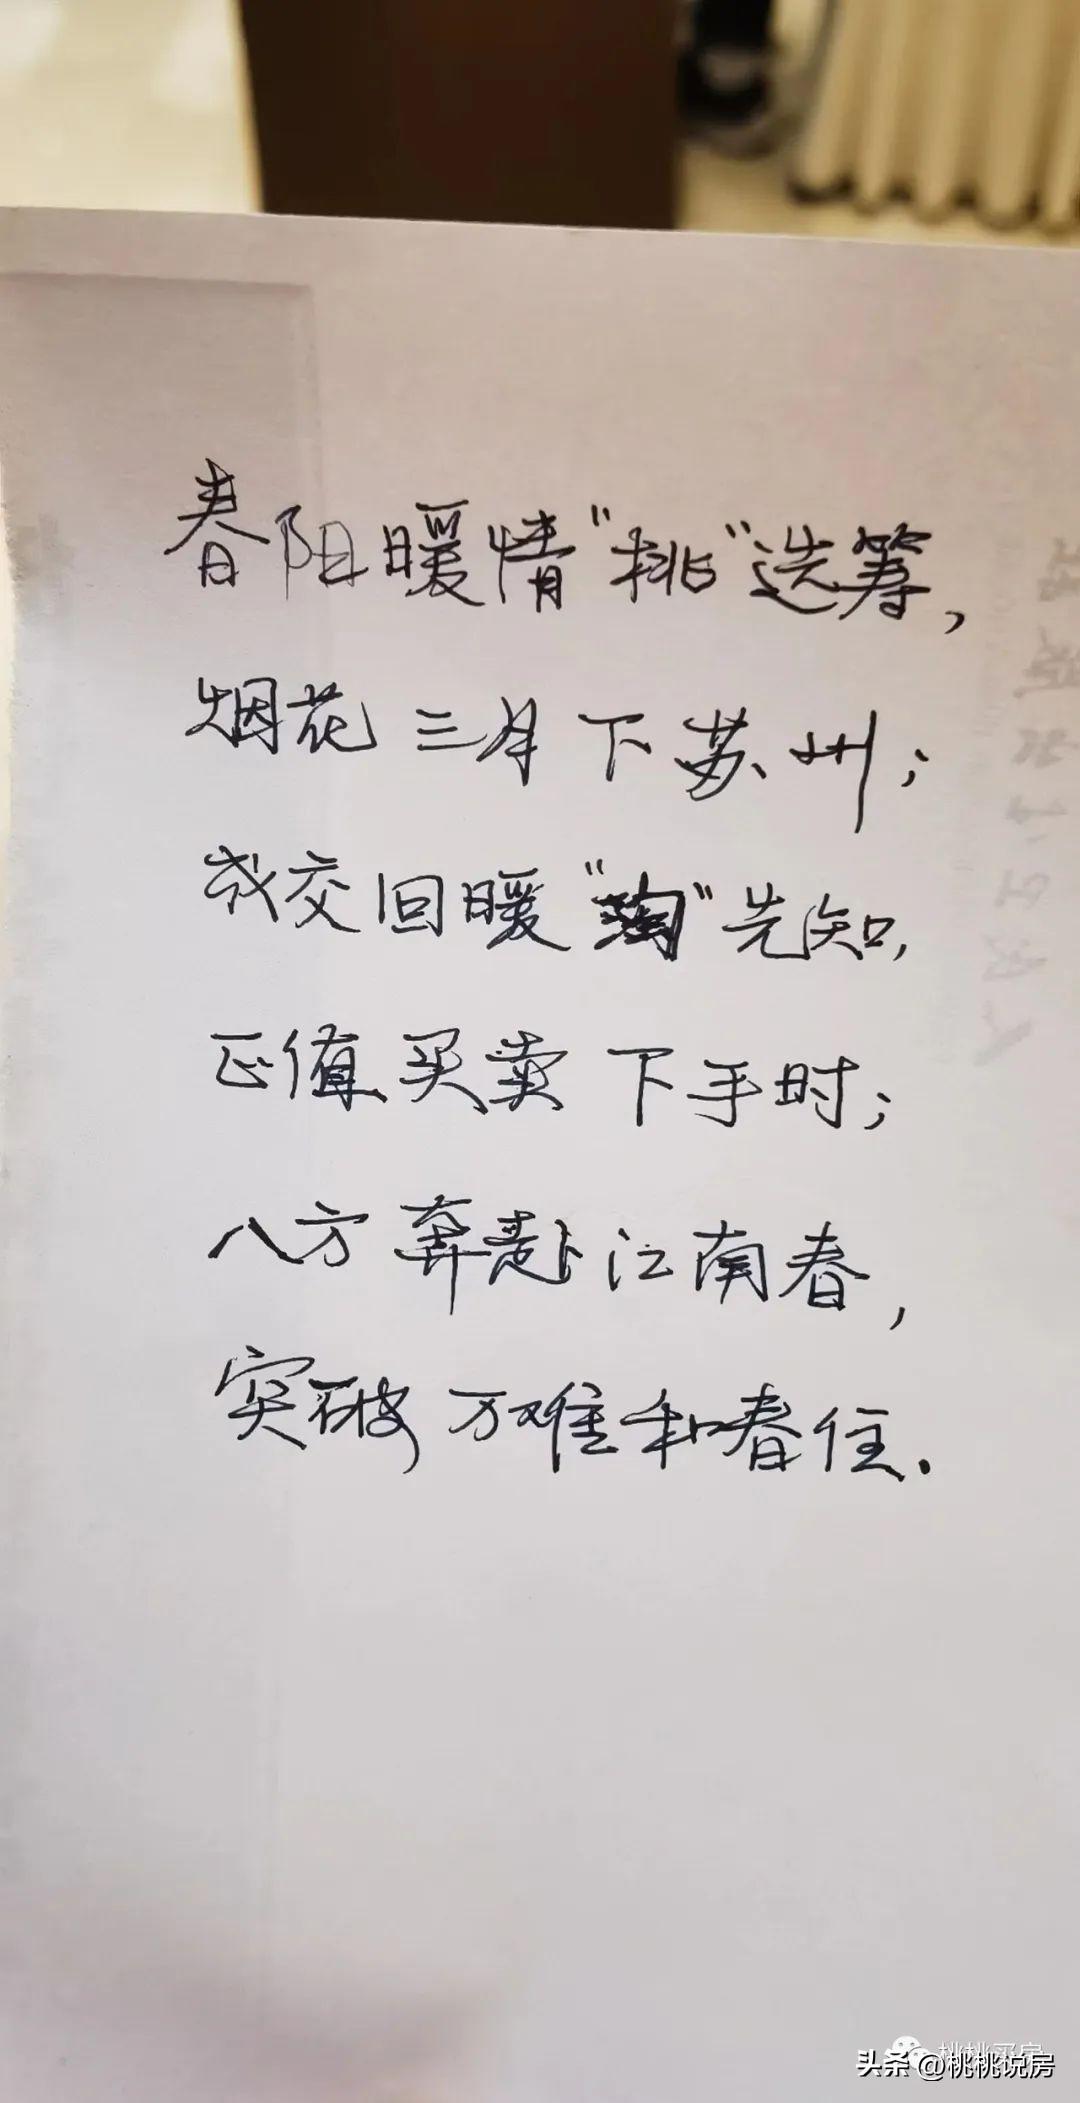 春阳暖情“挑”选筹，
烟花三月下苏州；
成交回暖“淘”先知，
正值买卖下手时；
八方奔赴江南春，
突破万难和春住.
桃桃买房
头条 @桃桃说房